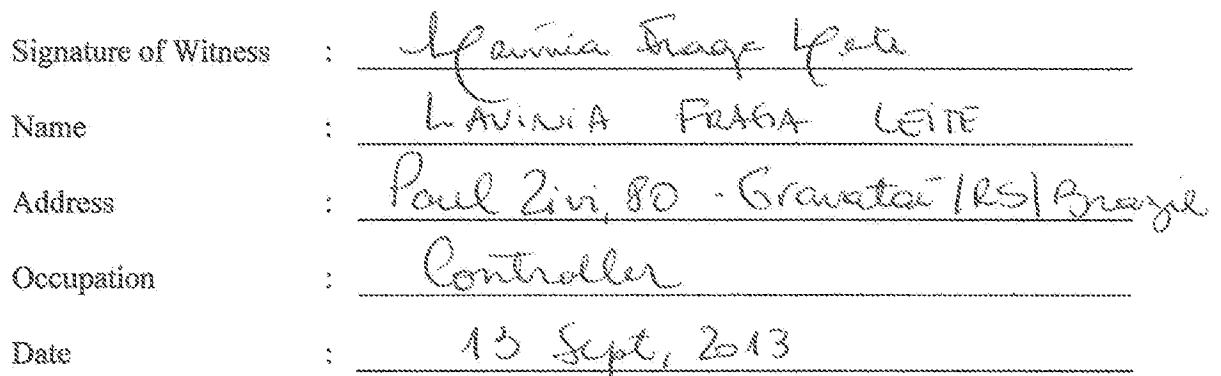 Signature of Witness : Lavinia Fraga Leite
Name : LAVINIA FRAGA LEITE
Address : Paul Zivi, 80 - Gravataí /RS/ Brazil
Occupation : Controller
Date : 13 Sept, 2013